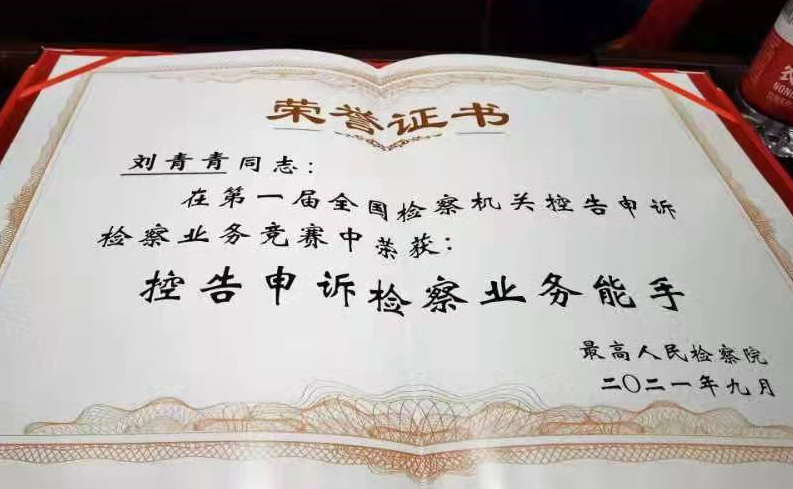 荣誉证书
刘青青同志：
在第一届全国检察机关控告申诉
检察业务竞赛中荣获：
控告申诉检察业务能手
最高人民检察院
二〇二一年九月
农
NONG